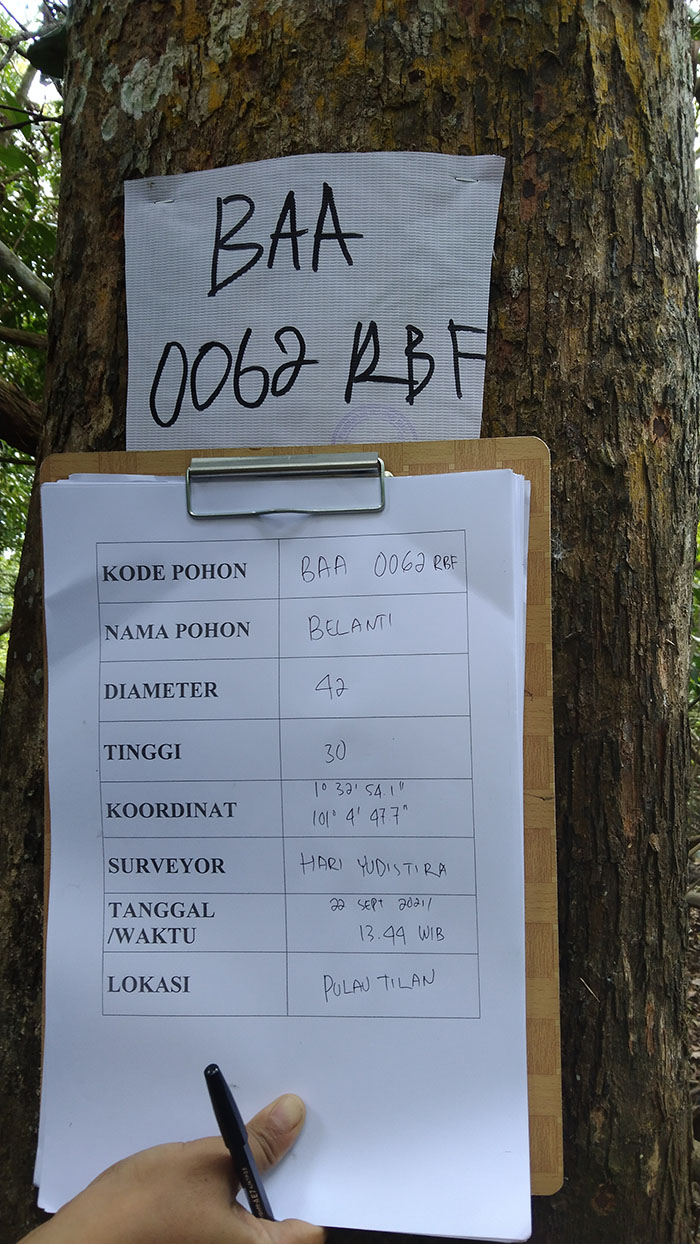 BAA
0062 RBF
KODE POHON BAA 0062 RBF
NAMA POHON BELANTI
DIAMETER 42
TINGGI 30
KOORDINAT 1° 32' 54.1"
101° 4' 47.7"
SURVEYOR HARI YUDISTIRA
TANGGAL 22 SEPT 2021/
/WAKTU 13.44 WIB
LOKASI PULAU TILAN